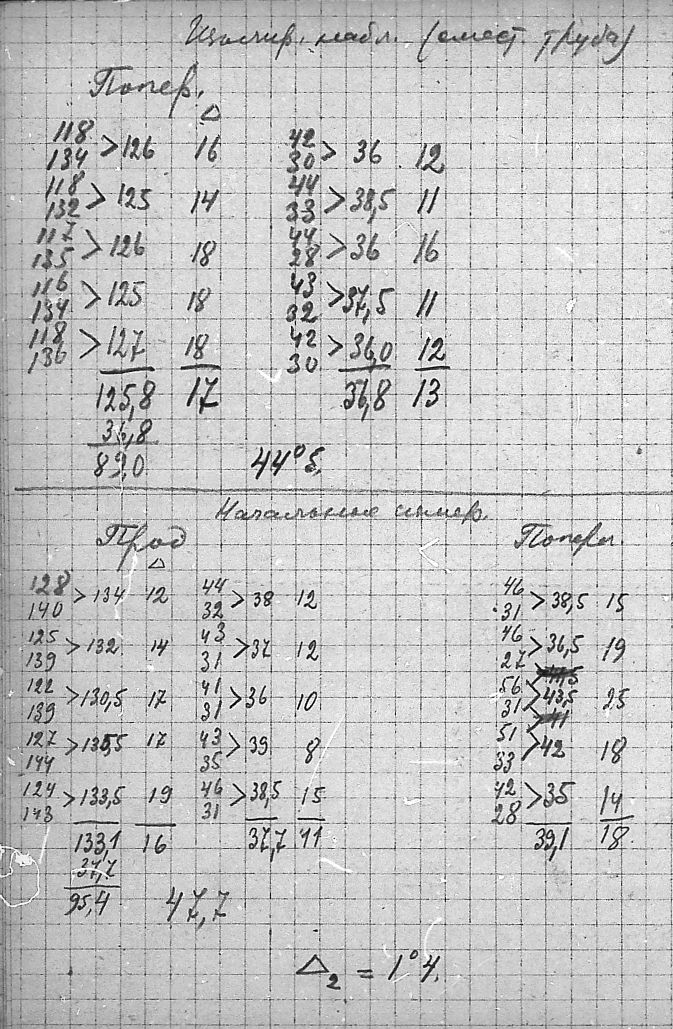 набл. (смест. труба)
Попер.
Δ
118
134 > 126 16 42
30 > 36 12
118
132 > 125 14 44
33 > 38,5 11
117
135 > 126 18 44
28 > 36 16
116
134 > 125 18 43
32 > 37,5 11
118
136 > 127 18 42
30 > 36,0 12
125,8 17 36,8 13
36,8
89,0 44°5.
Начальные измер.
Прод Попереч.
Δ
128
140 > 134 12 44
32 > 38 12 46
31 > 38,5 15
125
139 > 132 14 43
31 > 37 12 46
27 > 36,5 19
122
139 > 130,5 17 41
31 > 36 10 56
31 > 43,5 25
127
144 > 135,5 17 43
35 > 39 8 51
33 > 42 18
124
143 > 133,5 19 46
31 > 38,5 15 42
28 > 35 14
133,1 16 37,7 11 39,1 18.
37,7
95,4 47,7
Δ2 = 1°4.